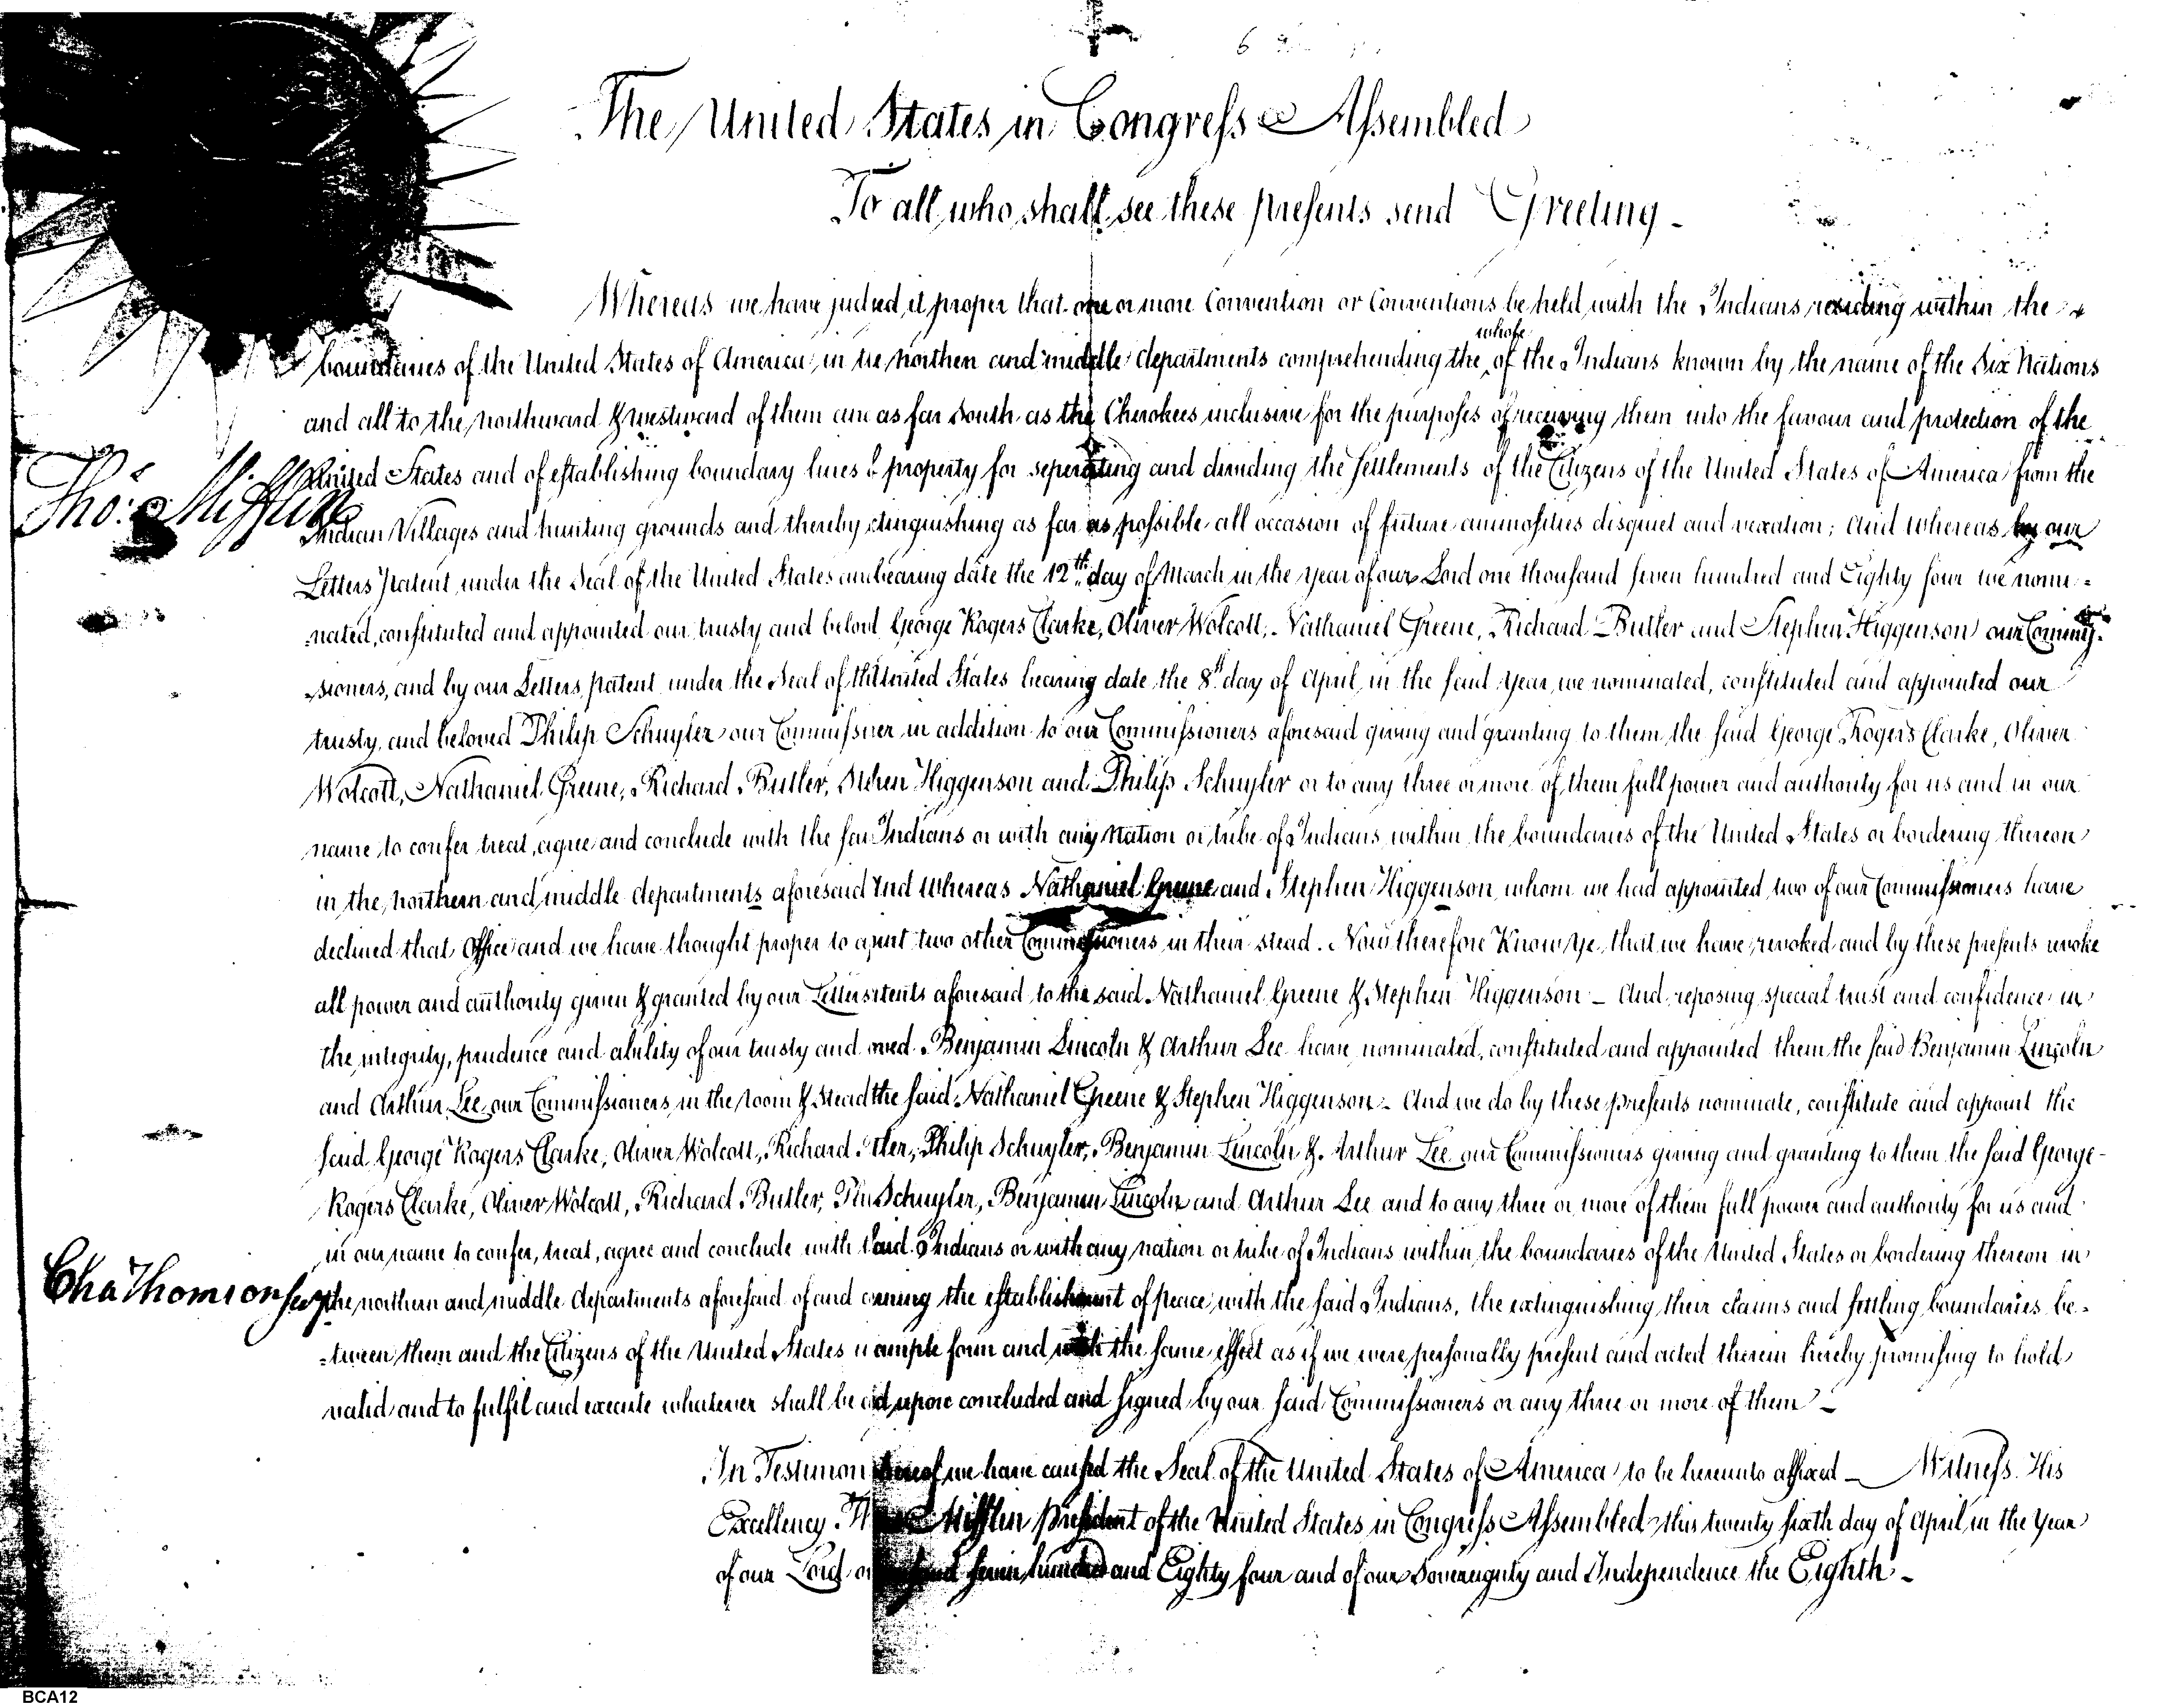 The United States in Congress Assembled
To all who shall see these presents send Greeting -
Whereas we have judged it proper that one or more Convention or Conventions be held with the Indians residing within the
whole
boundaries of the United States of America, in the northen and middle departments comprehending the ^ of the Indians known by the name of the Six Nations
and all to the northward & westward of them and as far South as the Cherokees inclusive for the purposes of receiving them into the favour and protection of the
United States and of establishing boundary lines of property for seperating and dividing the settlements of the Citizens of the United States of America from the
Tho.s Mifflin
Indian Villages and hunting grounds and thereby extinguishing as far as possible all occasion of future animosities disquiet and vexation; And whereas by our
Letters Patent under the Seal of the United States bearing date the 12th day of March in the year of our Lord one thousand seven hundred and Eighty four we nomi=
=nated, constituted and appointed our trusty and belovd George Rogers Clarke, Oliver Wolcott, Nathaniel Greene, Richard Butler and Stephen Higgenson our Commis-
sioners, and by our Letters patent under the Seal of the United States bearing date the 8th day of April in the said year, we nominated, constituted and appointed our
trusty and beloved Philip Schuyler our Commissioner in addition to our Commissioners aforesaid giving and granting to them the said George Rogers Clarke, Oliver
Wolcott, Nathaniel Greene, Richard Butler, Stephen Higgenson and Philip Schuyler or to any three or more of them full power and authority for us and in our
name to confer, treat, agree and conclude with the said Indians or with any nation or tribe of Indians within the boundaries of the United States or bordering thereon
in the northern and middle departments aforesaid And whereas Nathaniel Greene and Stephen Higgenson whom we had appointed two of our Commissioners have
declined that Office and we have thought proper to two other Commissioners in their stead. Now therefore Know Ye, that we have revoked and by these presents revoke
all power and authority given & granted by our Letters aforesaid to the said Nathaniel Greene & Stephen Higgenson - And reposing special trust and confidence in
the integrity, prudence and ability of our trusty and Benjamin Lincoln & Arthur Lee have nominated, constituted and appointed them the said Benjamin Lincoln
and Arthur Lee our Commissioners in the room & stead the said Nathaniel Greene & Stephen Higgenson - And we do by these presents nominate, constitute and appoint the
said George Rogers Clarke, Oliver Wolcott, Richard Philip Schuyler, Benjamin Lincoln & Arthur Lee our Commissioners giving and granting to them the said George-
Rogers Clarke, Oliver Wolcott, Richard Butler, Schuyler, Benjamin Lincoln and Arthur Lee and to any three or more of them full power and authority for us and
in our name to confer, treat, agree and conclude with Indians or with any nation or tribe of Indians within the boundaries of the United States or bordering thereon in
Cha Thomson Secy
the northern and middle departments aforesaid of and the establishment of peace with the said Indians, the extinguishing their claims and settling boundaries be=
=tween them and the Citizens of the United States ample form and with the same effect as if we were personally present and acted therein hereby promising to hold
valid and to fulfil and execute whatever shall be upon concluded and signed by our said Commissioners or any three or more of them -
In we have caused the Seal of the United States of America to be hereunto affixed - Witness His
Excellency Mifflin President of the United States in Congress Assembled this twenty sixth day of April in the Year
of our Lord seven hundred and Eighty four and of our Sovereignty and Independence the Eighth -
BCA12